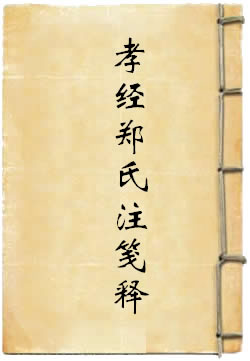 孝经郑氏注笺释